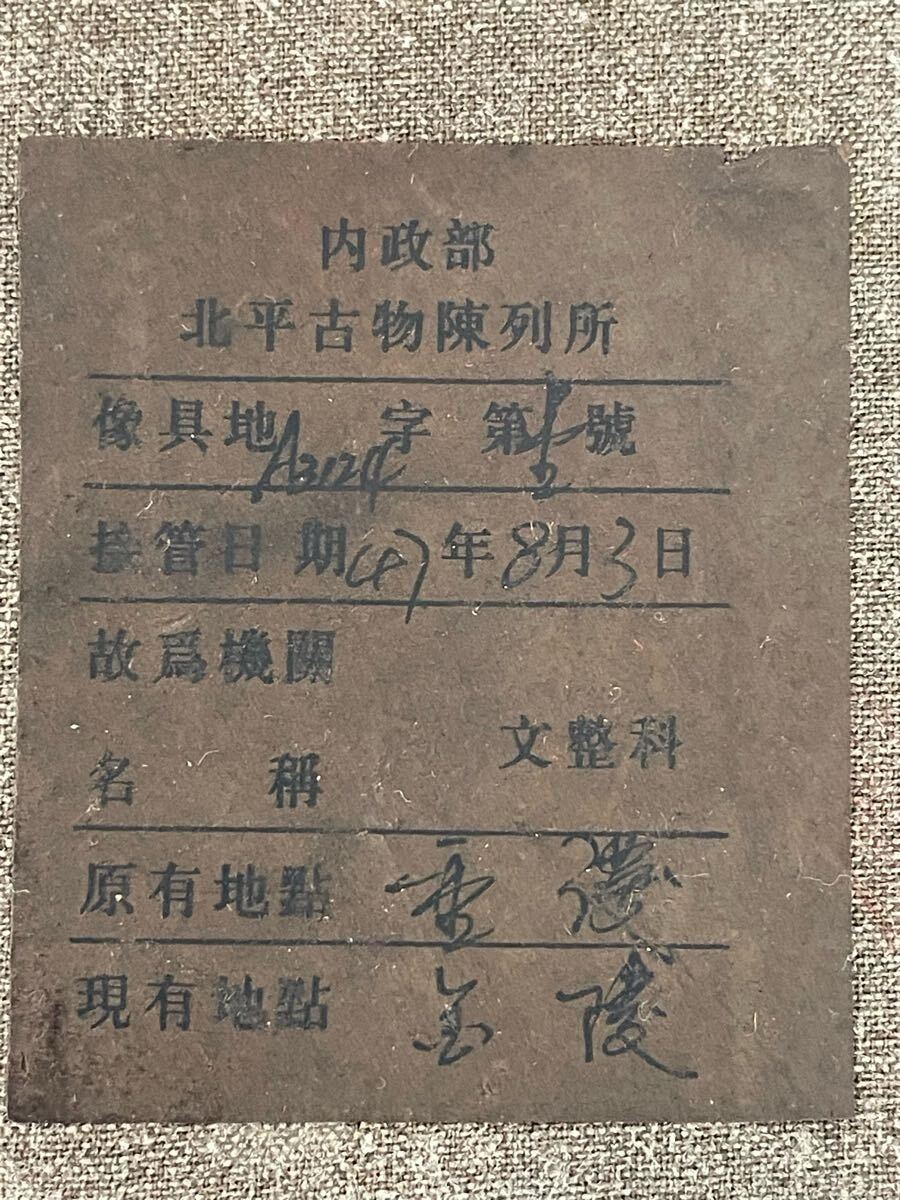 内政部
北平古物陳列所
傢具地 字 第 號
A3124
接管日期 47年8月3日
故爲機關
文整科
名 稱
原有地點 重
現有地點 金陵